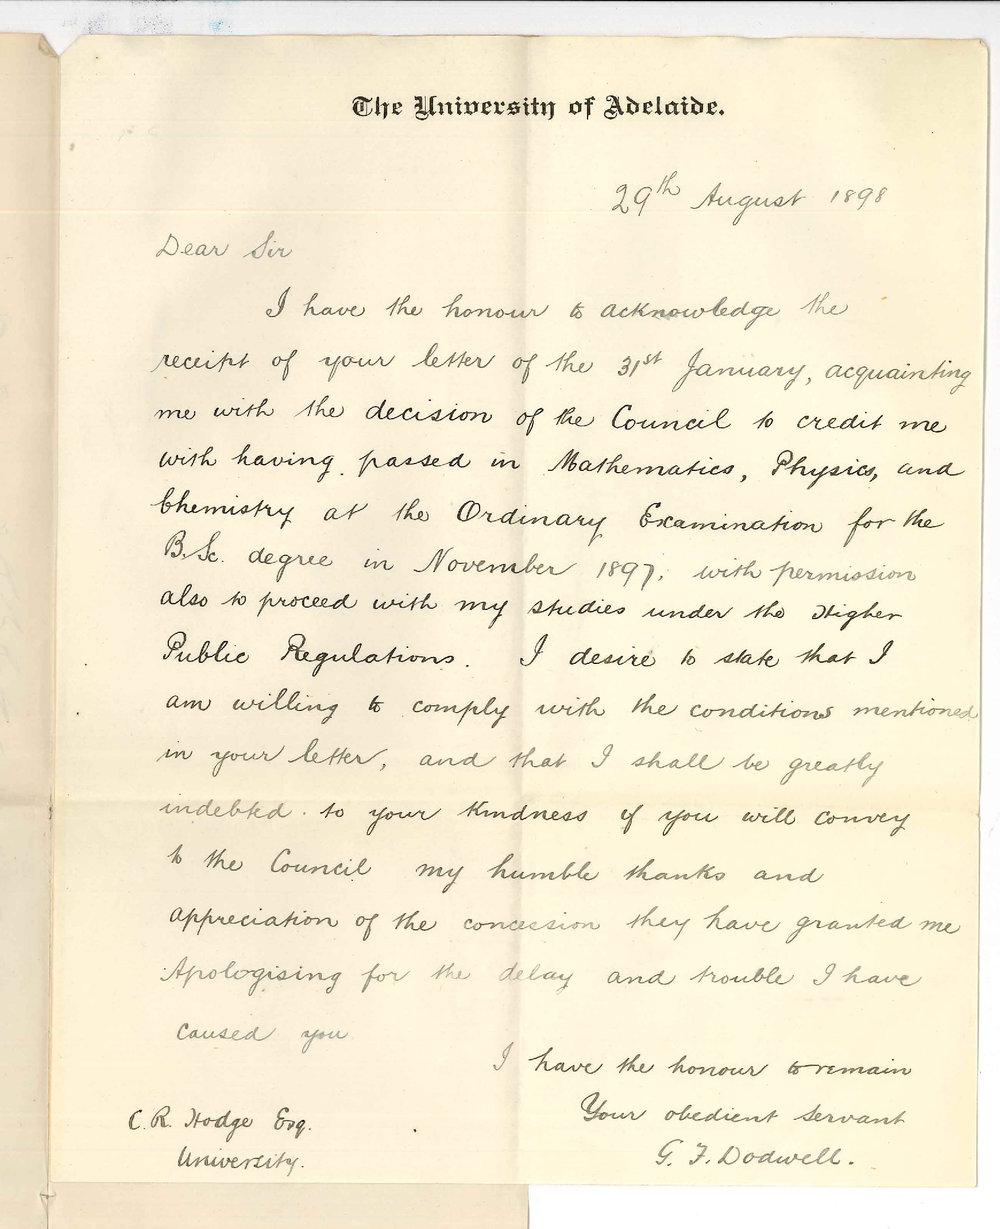 The University of Adelaide.
29th August 1898
Dear Sir
I have the honour to acknowledge the
receipt of your letter of the 31st January, acquainting
me with the decision of the Council to credit me
with having passed in Mathematics, Physics, and
Chemistry at the Ordinary Examination for the
B.Sc. degree in November 1897, with permission
also to proceed with my studies under the Higher
Public Regulations. I desire to state that I
am willing to comply with the conditions mentioned
in your letter, and that I shall be greatly
indebted to your kindness if you will convey
to the Council my humble thanks and
appreciation of the concession they have granted me
Apologising for the delay and trouble I have
caused you
I have the honour to remain
Your obedient servant
G. F. Dodwell.
C. R. Hodge Esq.
University.